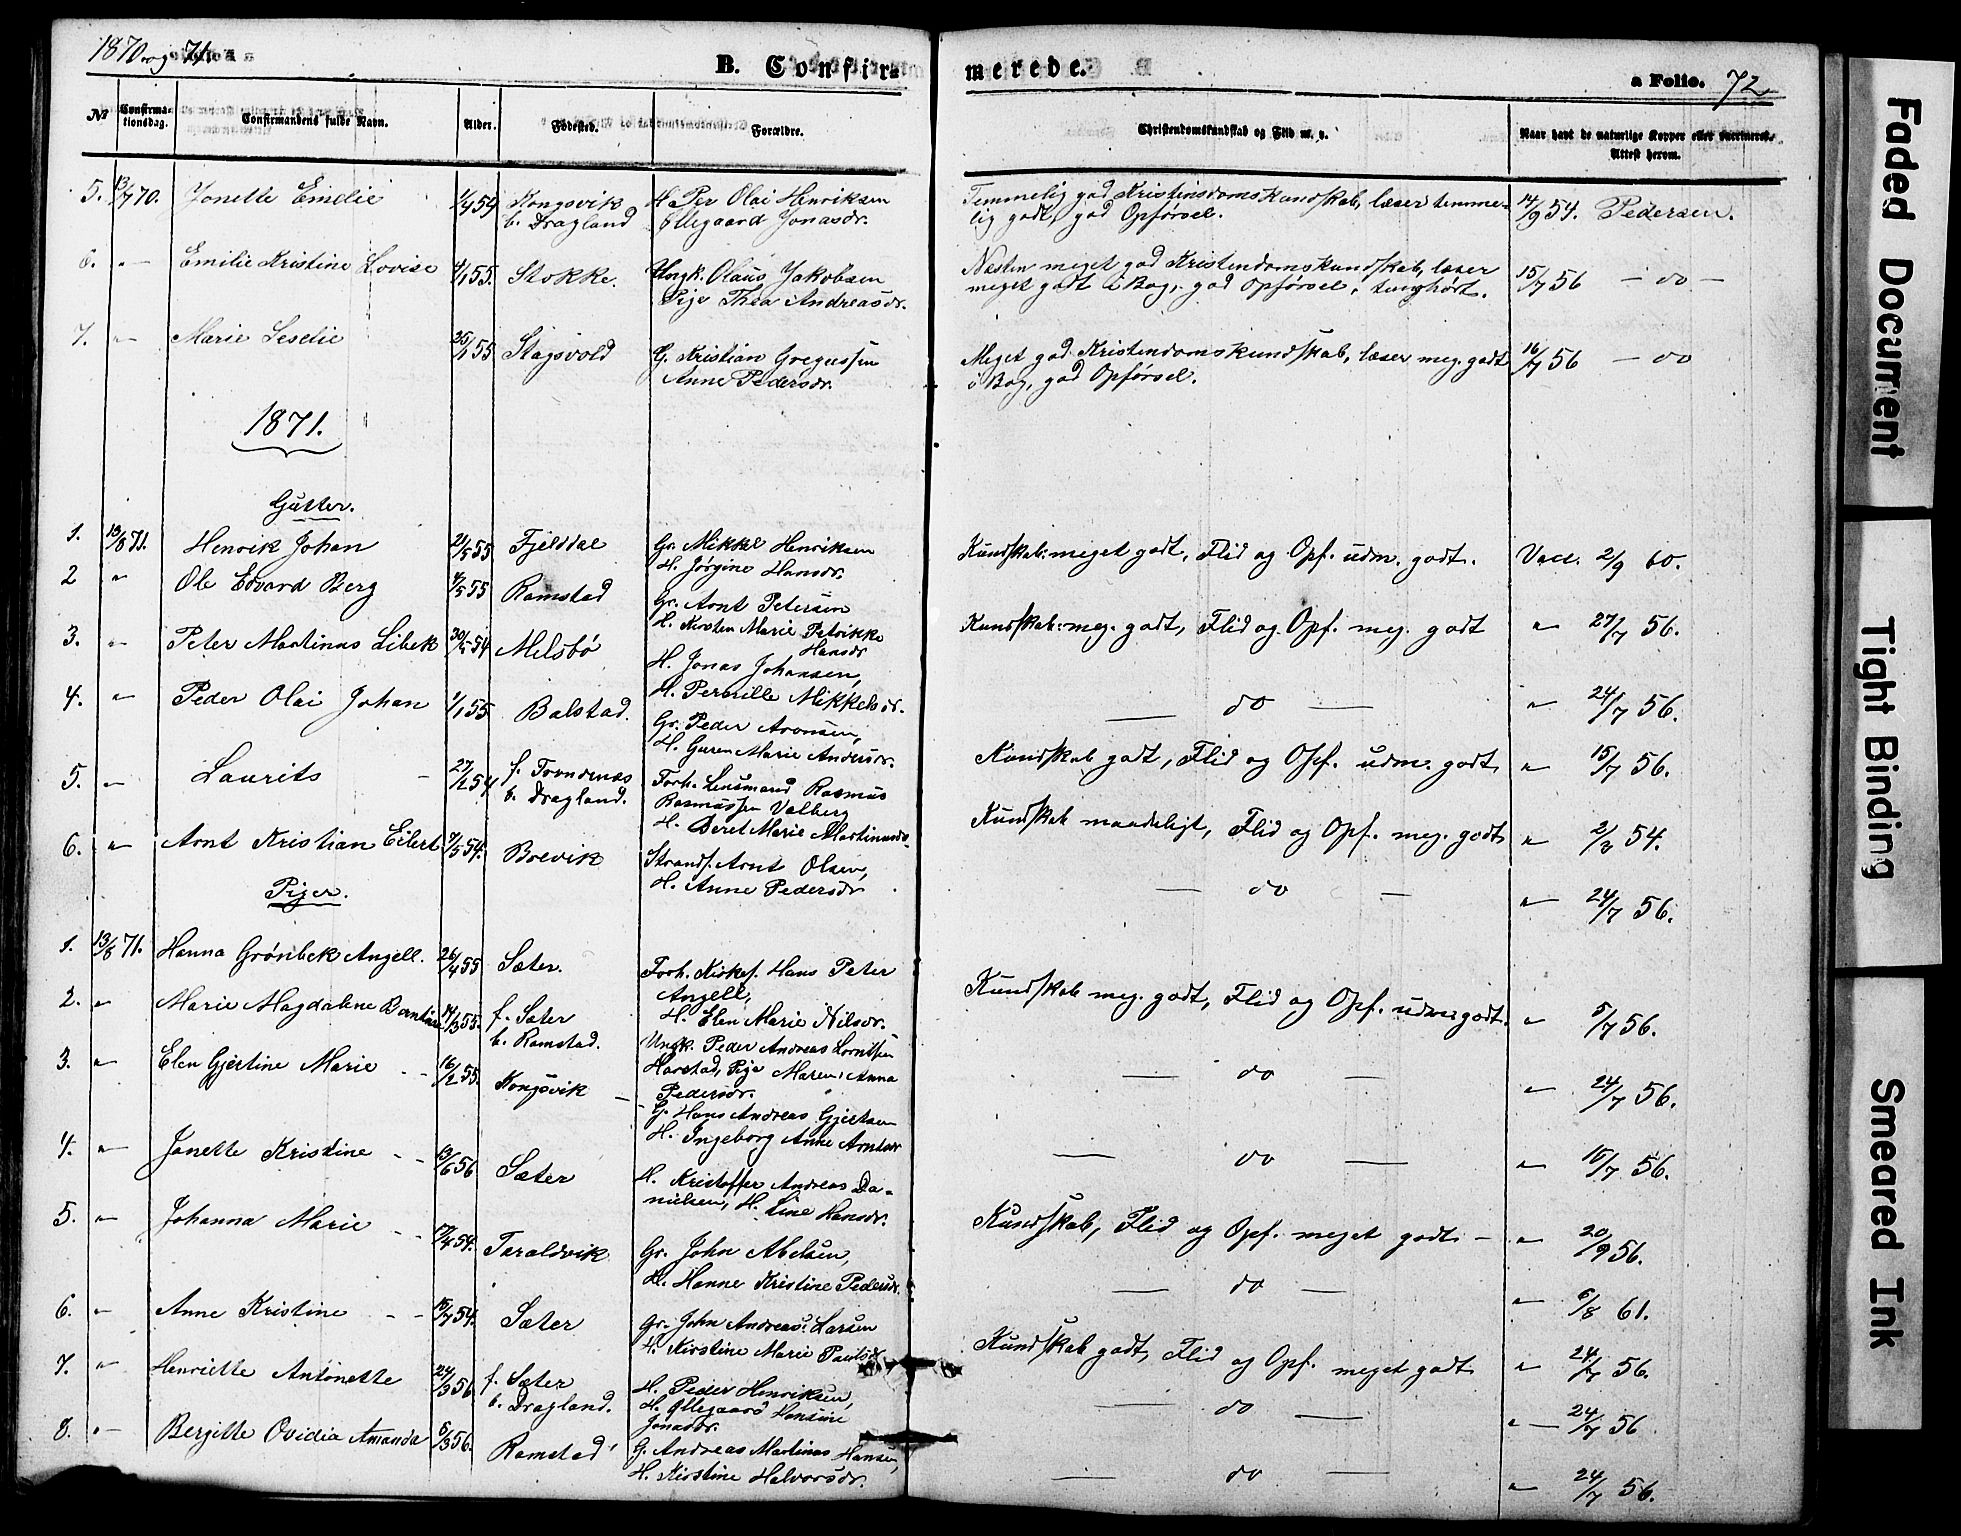 1870 og 71.
B. Confirmerede.
a Folio. 72
No
Confirmationsdag.
Confirmandens fulde Navn.
Alder.
Fødested.
Forældre.
Christendomskundskab og Flid m. v.
Naar havt de naturlige Kopper eller vaccineret.
Attest herom.
5. 13/7 70. Jonette Emelie 1/4 54 Kongsvik H. Per Olai Henriksen Temmelig god Kristendomskundskab, læser temme- 14/9 54. Pedersen.
b. Dragland Ollegaard Jonasdr. lig godt, god Opførsel.
6. " Emilie Kristine Lovise 4/1 55. Stokke. Ungk. Olaus Jakobsen Næsten meget god Kristendomskundskab, læser 15/7 56 — do —
Pige Thea Andreasdr. meget godt i Bog, god Opførsel, tunghørt.
7. " Marie Seselie 25/1 55 Stagsvold G. Kristian Gregussen Meget god Kristendomskundskab, læser meg. godt 16/7 56 — do
Anne Pedersdr. i Bog, god Opførsel.
1871.
Gutter.
1. 13/8 71. Henrik Johan 21/5 55 Fjelddal Gr. Mikkel Henriksen Kundskab: meget godt, Flid og Opf. udm. godt. Vacc. 2/9 60.
H. Jørgine Hansdr.
2 " Ole Edvard Berg 4/5 55 Ramstad Gr. Arnt Petersen Kundskab: meg. godt, Flid og Opf. meg. godt " 27/7 56.
H. Kirsten Marie Petrikke
Hansdr
3. " Peter Martinus Libek 30/12 54 Melsbø H. Jonas Johansen, — do — " 24/7 56.
H. Pernille Mikkelsdr.
4. " Peder Olai Johan 1/1 55 Balstad. Gr. Peder Aronsen, Kundskab godt, Flid og Opf. udm. godt " 15/7 56.
H. Guren Marie Andersdr.
5. " Laurits 27/2 54 f. Trondenæs Forh. Lensmand Rasmus Kundskab maadeligt, Flid og Opf. meg. godt " 2/3 54.
b. Dragland. Rasmussen Valberg
H. Beret Marie Martinusdr
6. " Arnt Kristian Eilert 7/5 54. Brevik Strands. Arnt Olsen, — do — " 24/7 56.
H. Anne Pedersdr
Piger.
1. 13/8 71. Hanna Grønbek Angell. 26/4 55 Sæter. Forh. Kirkes. Hans Peter Kundskab meg. godt, Flid og Opf. udm. godt. " 5/7 56.
Angell,
H. Elen Marie Nilsdr.
2. " Marie Magdalene 14/3 55. f. Sæter Ungk. Peder Andreas Lorntsen — do — " 24/7 56.
b. Ramstad. Harstad, Pige Maren Anna
Pedersdr.
3. " Elen Gjertine Marie 16/2 55. Kongsvik G. Hans Andreas Gjertsen — do — " 10/7 56.
H. Ingeborg Anne Arntsdr
4. " Jonette Kristine 13/6 56 Sæter H. Kristoffer Andreas Da- Kundskab, Flid og Opf. meget godt — " 20/9 56.
nielsen, H. Line Hansdr.
5. " Johanna Marie 17/4 54. Taraldvik Gr. John Abelsen, — do — " 6/8 61.
H. Hanne Kristine Pedersdr.
6. " Anne Kristine 15/7 54. Sæter Gr. John Andreas Larsen Kundskab godt, Flid og Opf. meget godt " 24/7 56.
H. Kirstine Marie Paulsdr
7. " Henriette Antonette 24/3 56 f. Sæter H. Peder Henriksen, — do — " 24/7 56
b. Dragland. H. Ollegaard Hansine
Jonasdr.
8. " Bergitte Ovidia Amanda 5/3 56. Ramstad G. Andreas Martinus Hansen, — do — " 24/7 56.
H. Kirstine Halvorsdr.
Faded Document
Tight Binding
Smeared Ink